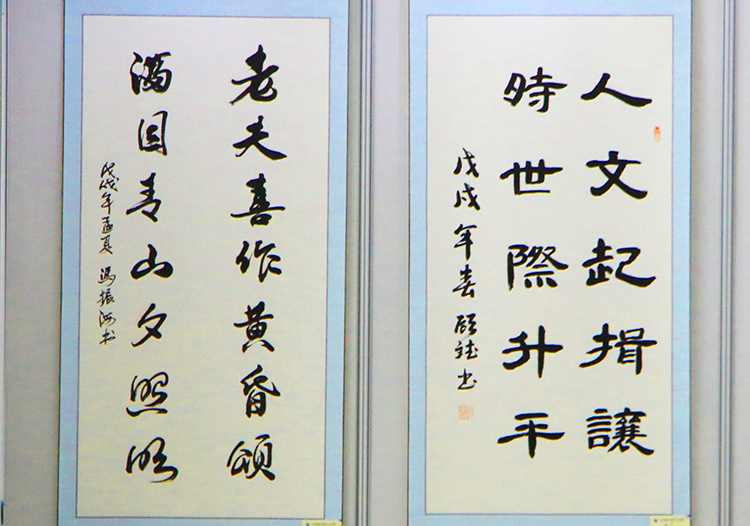 人文起揖讓
時世際升平
戊戌年春 顾斌书
老夫喜作黄昏頌
满目青山夕照明
戊戌年孟夏 冯振海书